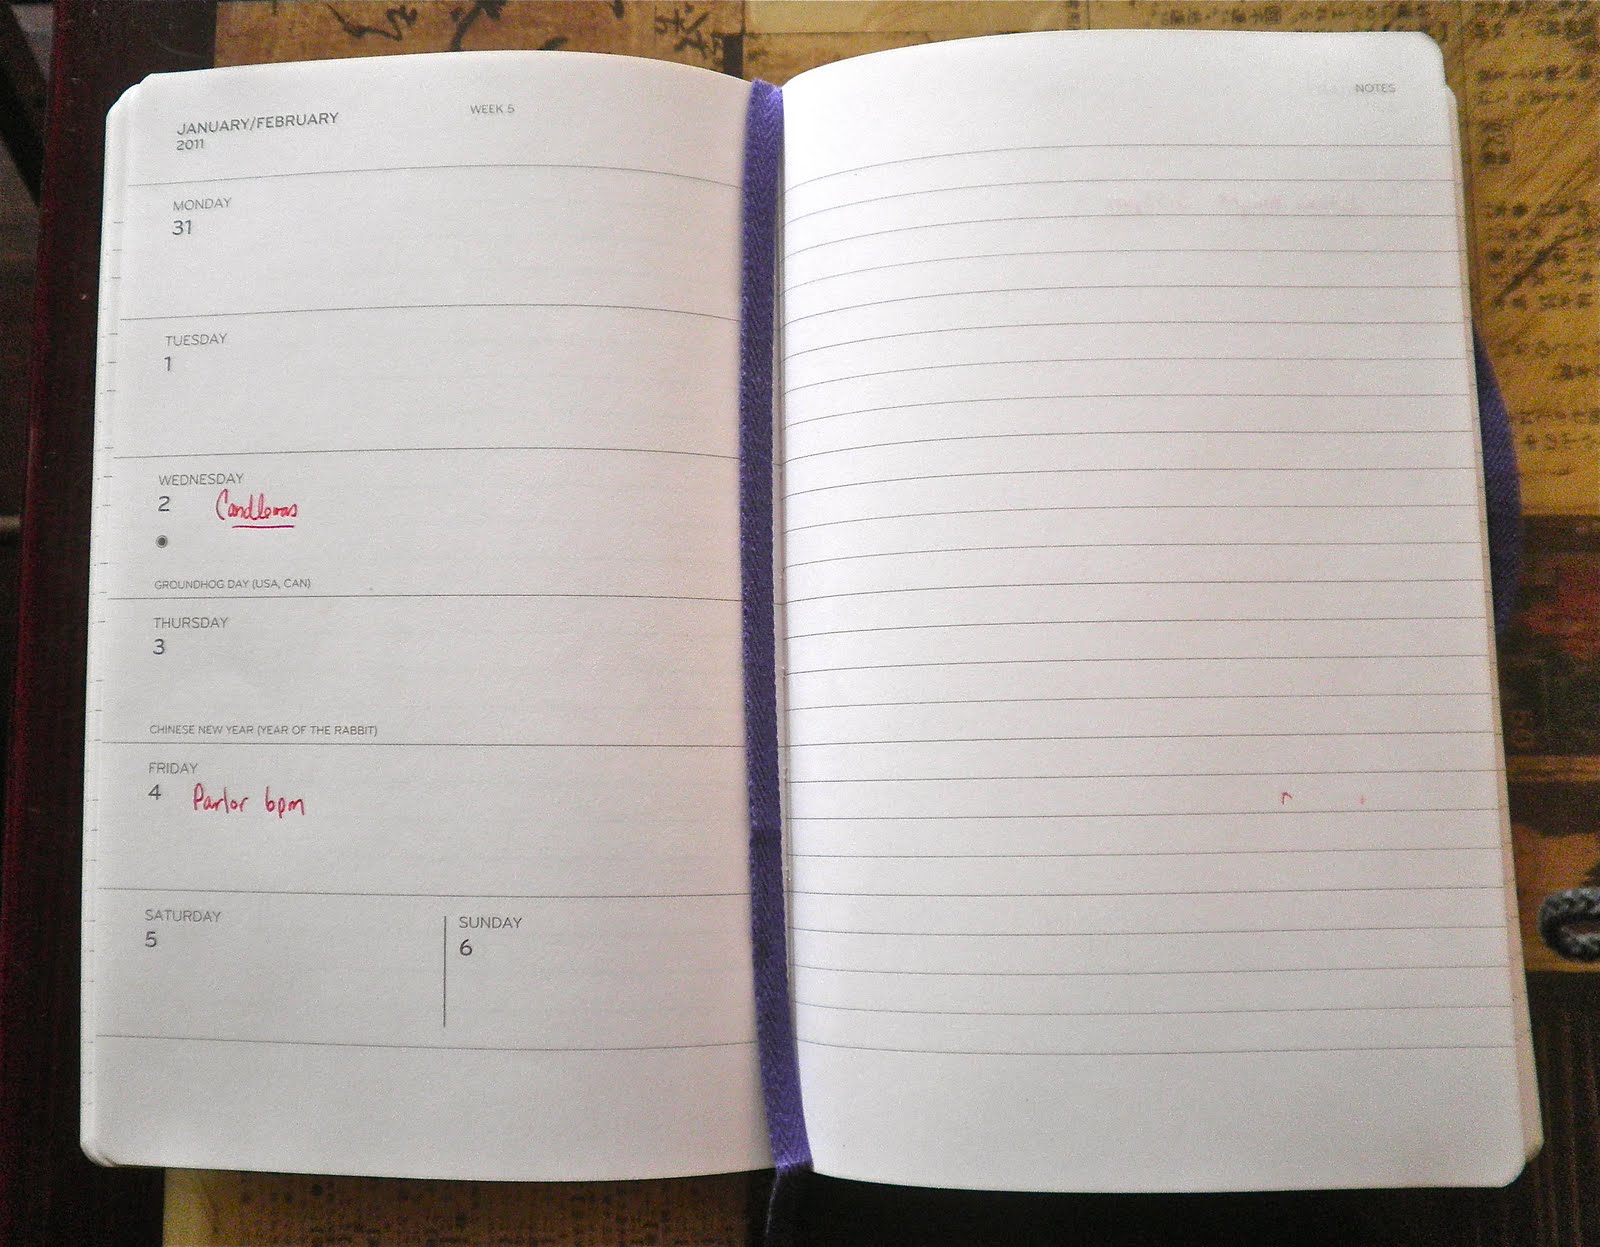 JANUARY/FEBRUARY
2011
WEEK 5
MONDAY
31
TUESDAY
1
WEDNESDAY
2 Candlemas
GROUNDHOG DAY (USA, CAN)
THURSDAY
3
CHINESE NEW YEAR (YEAR OF THE RABBIT)
FRIDAY
4 Parlor 6pm
SATURDAY
5
SUNDAY
6
NOTES